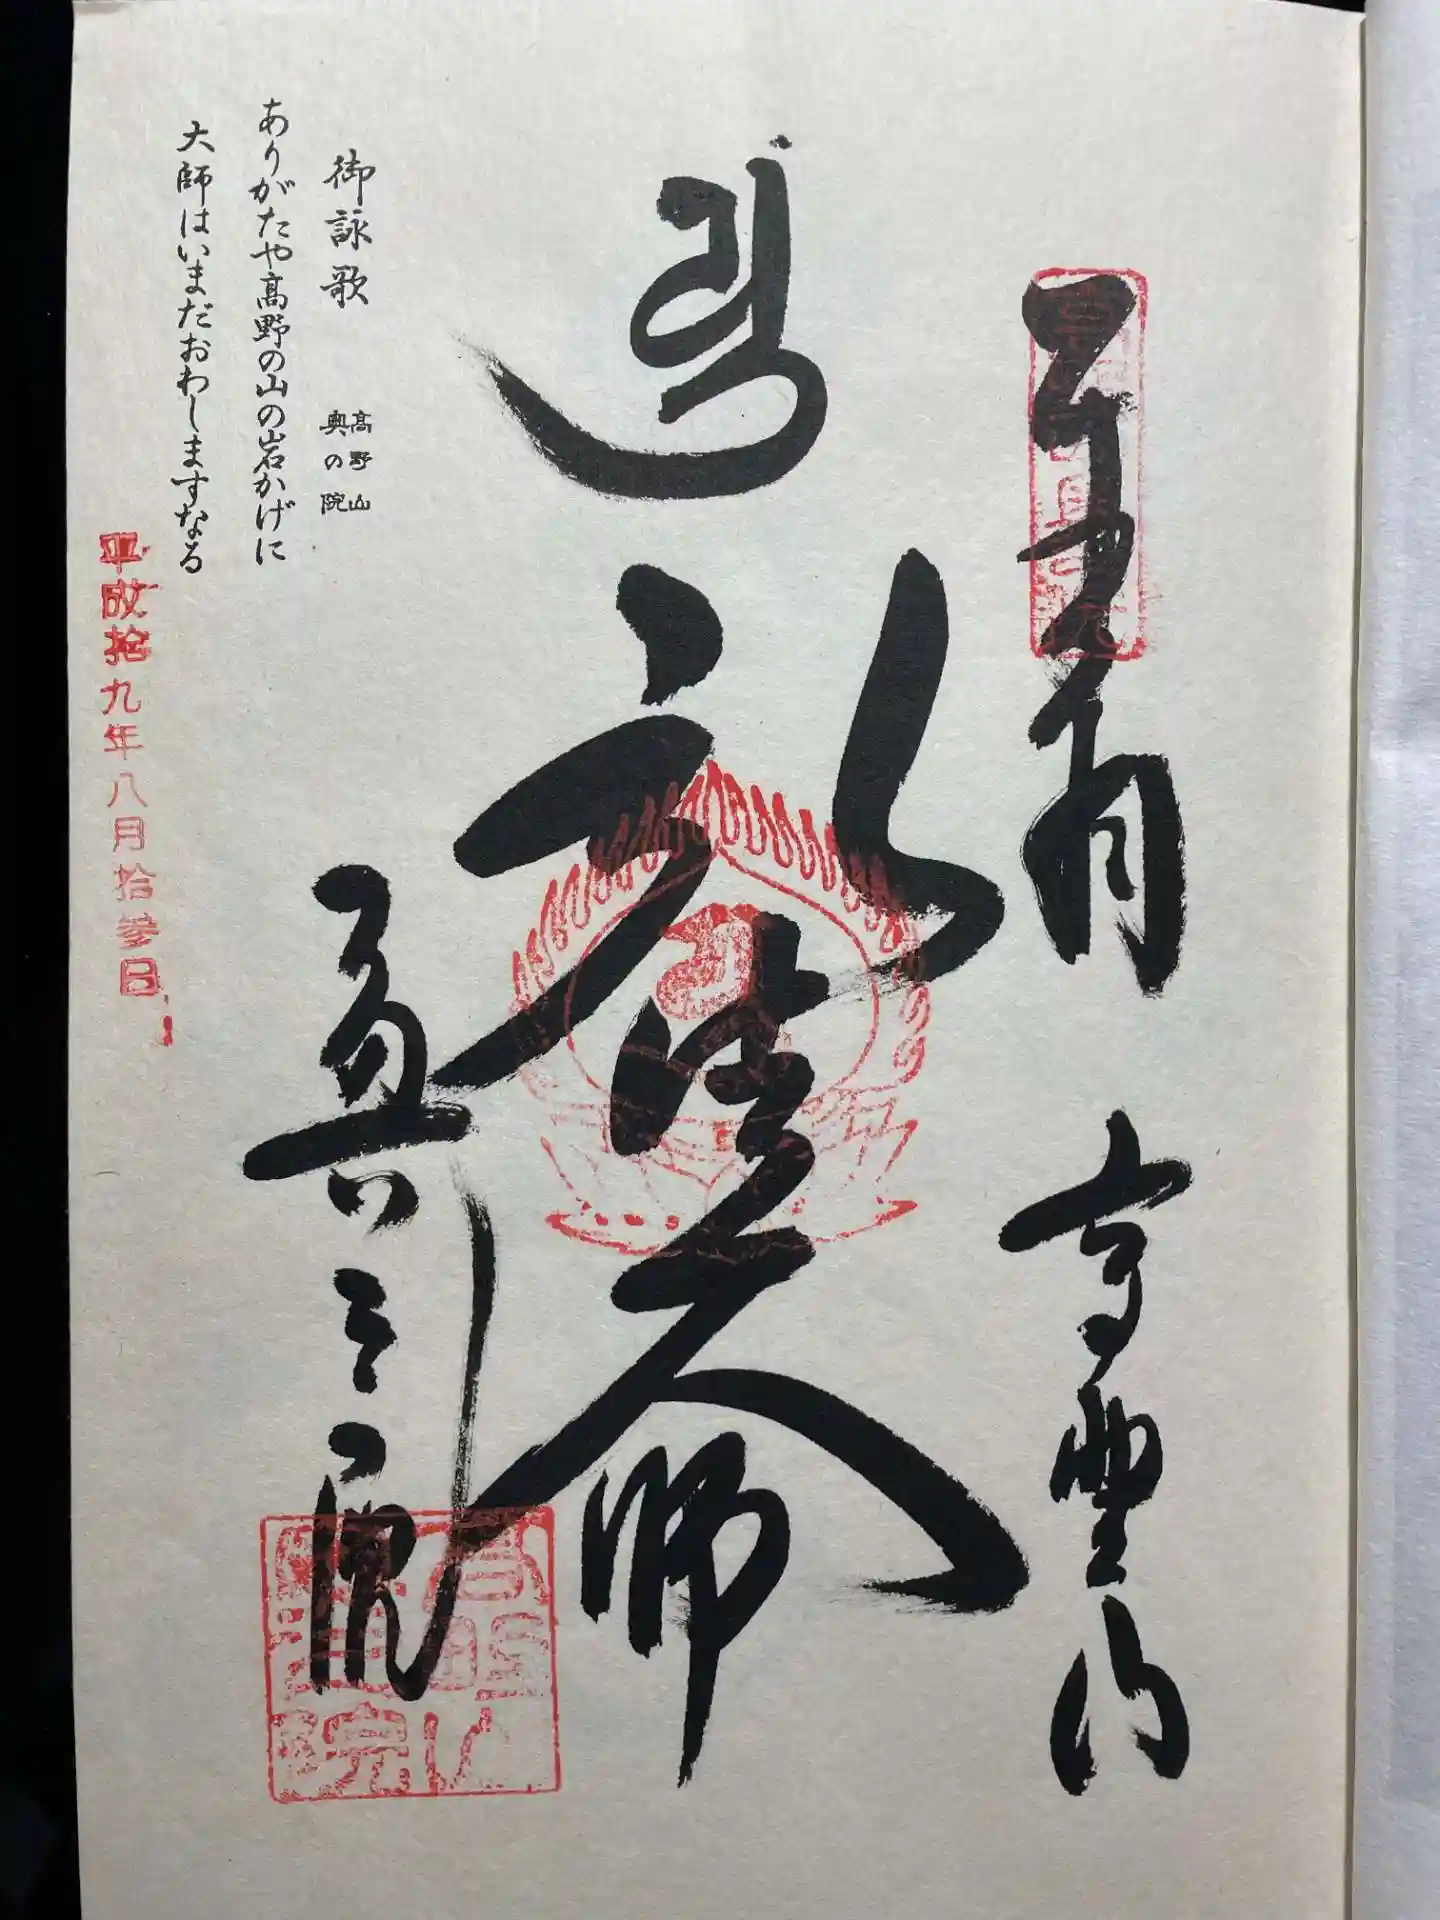 高野山
弘法大師
奥之院
御詠歌 髙野山 奥の院
ありがたや髙野の山の岩かげに
大師はいまだおわしますなる
平成拾九年八月拾参日